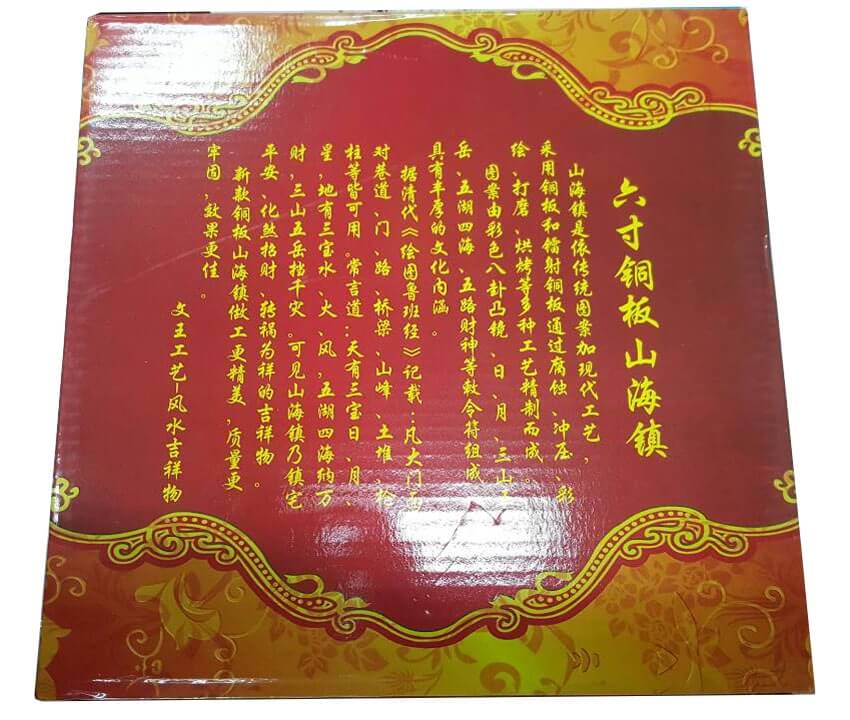 六寸铜板山海镇
山海镇是依传统图案加现代工艺，
采用铜板和镭射铜板通过腐蚀、冲压、彩
绘、打磨、烘烤等多种工艺精制而成。
图案由彩色八卦凸镜、日、月、三山五
岳、五湖四海、五路财神等敕令符组成，
具有丰厚的文化内涵。
据清代《绘图鲁班经》记载：凡大门面
对巷道、门、路、桥梁、山峰、土堆、枪
柱等皆可用。常言道：天有三宝日、月、
星，地有三宝水、火、风，五湖四海纳万
财，三山五岳挡千灾。可见山海镇乃镇宅
平安、化煞招财、转祸为祥的吉祥物。
新款铜板山海镇做工更精美，质量更
牢固，效果更佳。
文王工艺-风水吉祥物